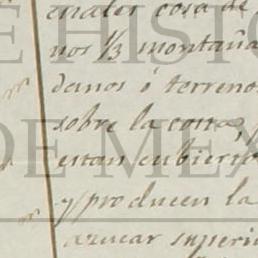 enales cosa de
nos 1/3 montaña
danos ó terreno
sobre la costa,
estan cubierto
y producen la
azucar superi